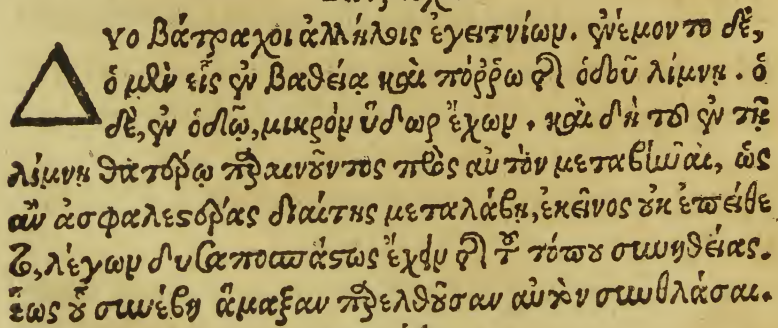 ΔΥο βάτραχοι ἀλλήλοις ἐγειτνίων. ἐνέμοντο δὲ,
ὁ μὲν εἷς ἐν βαθείᾳ καὶ πόῤῥω τῆς ὁδοῦ λίμνῃ. ὁ
δὲ, ἐν ὁδῷ, μικρὸν ὕδωρ ἔχων. καὶ δὴ τοῦ ἐν τῇ
λίμνῃ θατέρῳ παραινοῦντος πρὸς αὐτὸν μεταβῆναι, ὡς
ἂν ἀσφαλεστέρας διαίτης μεταλάβῃ, ἐκεῖνος οὐκ ἐπείθε
το, λέγων δυσαποσπάστως ἔχειν τῆς τοῦ τόπου συνηθείας.
ἕως οὗ συνέβη ἅμαξαν παρελθοῦσαν αὐτὸν συνθλάσαι.